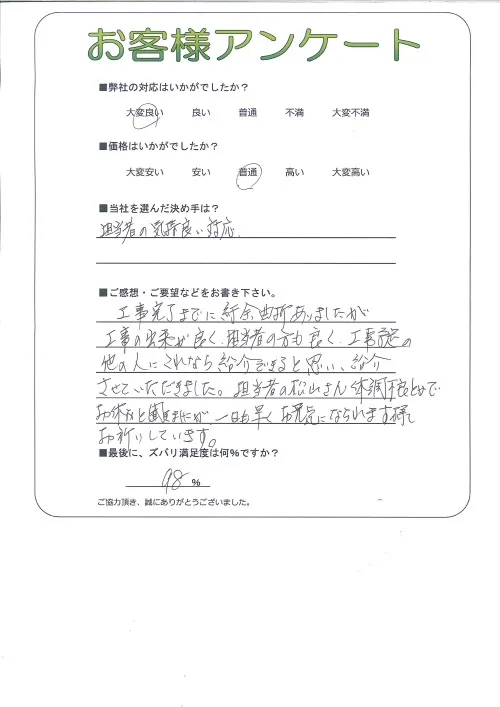 お客様アンケート
■弊社の対応はいかがでしたか？
大変良い 良い 普通 不満 大変不満
■価格はいかがでしたか？
大変安い 安い 普通 高い 大変高い
■当社を選んだ決め手は？
担当者の気持良い対応.
■ご感想・ご要望などをお書き下さい。
工事完了までに紆余曲折ありましたが
工事の出来が良く、担当者の方も良く、工事予定の
他の人にこれなら紹介できると思い、紹介
させていただきました。担当者の松山さん体調不良とかで
お休みと聞きましたが、一日も早くお元気になられます様
お祈りしています。
■最後に、ズバリ満足度は何%ですか？
98 %
ご協力頂き、誠にありがとうございました。